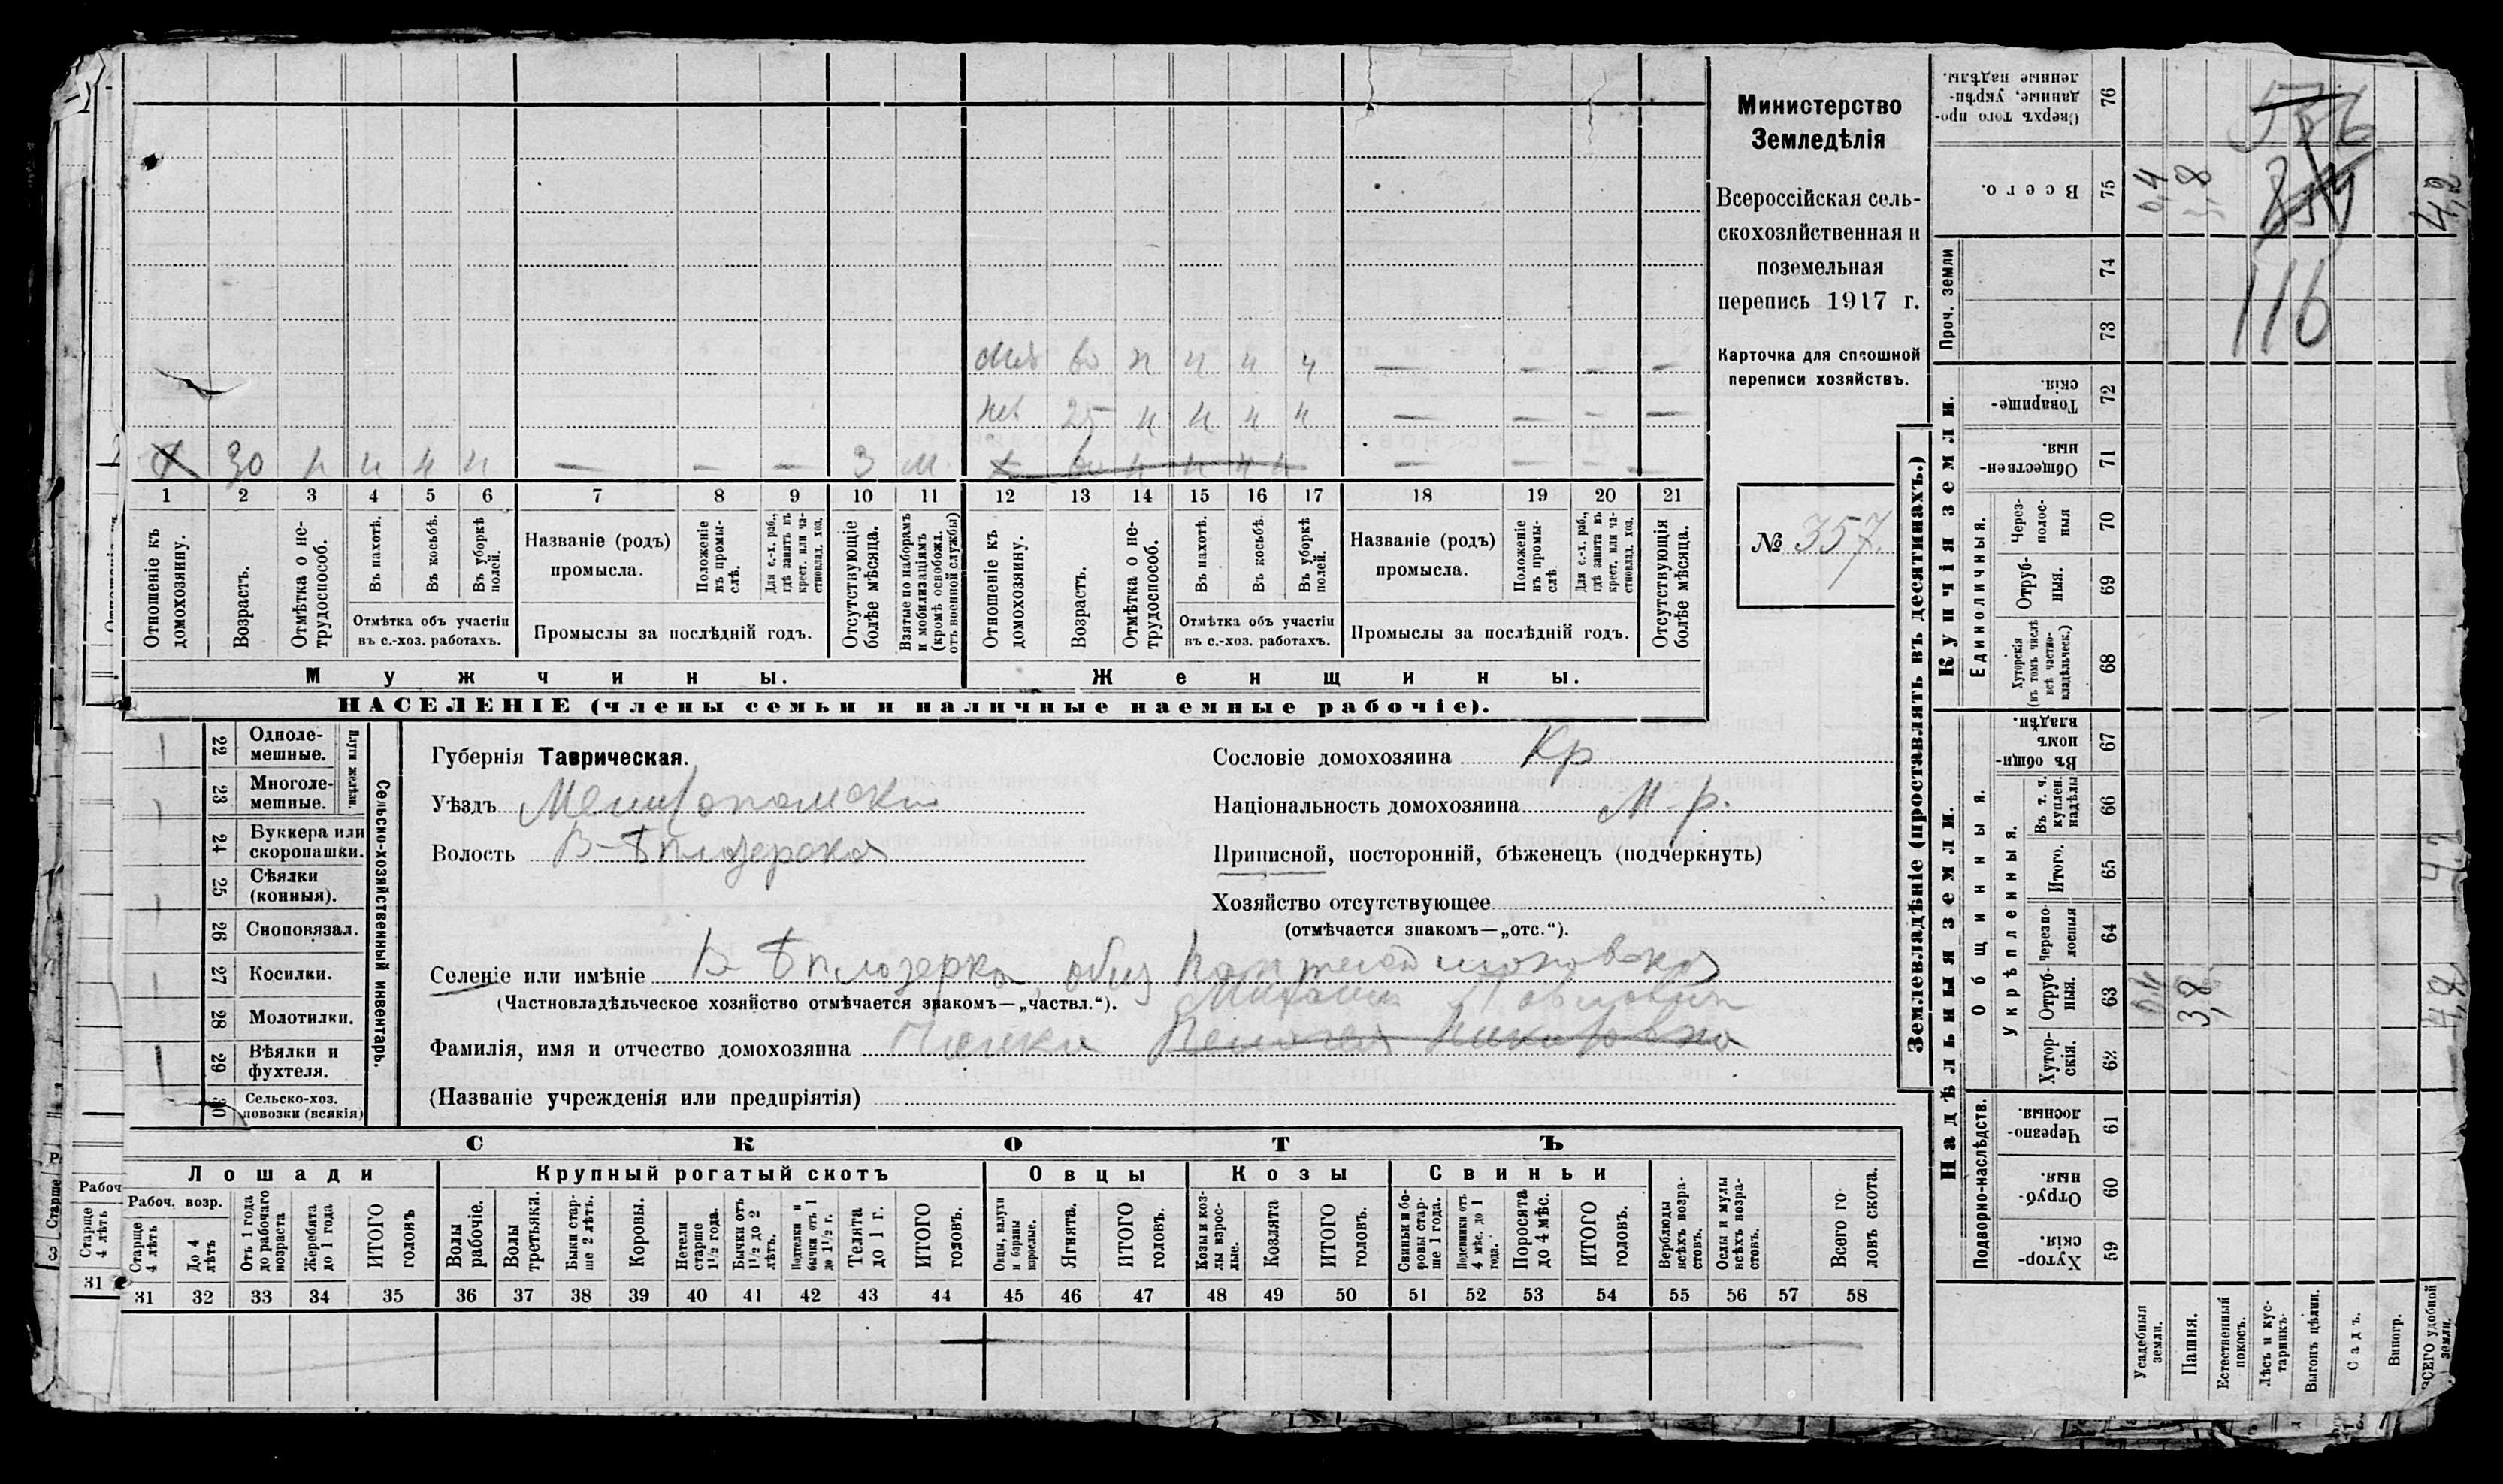 мат 60 н н н н — — — —
нев 25 н н н н — — — —
х 30 н н н н — — — 3 м. х 60 н н н н — — — —
1 2 3 4 5 6 7 8 9 10 11 12 13 14 15 16 17 18 19 20 21
Отношеніе къ домохозяину.
Возрастъ.
Отмѣтка о нетрудоспособ.
Въ пахотѣ.
Въ косьбѣ.
Въ уборкѣ полей.
Отмѣтка объ участіи
въ с.-хоз. работахъ.
Названіе (родъ)
промысла.
Положеніе въ промыслѣ.
Для с.-х. раб., гдѣ занятъ въ крест. или частновлад. хоз.
Промыслы за послѣдній годъ.
Отсутствующіе болѣе мѣсяца.
Взятые по наборамъ и мобилизаціямъ (кромѣ освобожд. отъ военной службы)
Отношеніе къ домохозяину.
Возрастъ.
Отмѣтка о нетрудоспособ.
Въ пахотѣ.
Въ косьбѣ.
Въ уборкѣ полей.
Отмѣтка объ участіи
въ с.-хоз. работахъ.
Названіе (родъ)
промысла.
Положеніе въ промыслѣ.
Для с.-х. раб., гдѣ занята въ крест. или частновлад. хоз.
Промыслы за послѣдній годъ.
Отсутствующія болѣе мѣсяца.
Мужчины.
Женщины.
НАСЕЛЕНІЕ (члены семьи и наличные наемные рабочіе).
Министерство
Земледѣлія
Всероссійская сель-
скохозяйственная и
поземельная
перепись 1917 г.
Карточка для сплошной
переписи хозяйствъ.
№ 357.
22 Одноле-
мешные.
23 Многоле-
мешные.
Плуги желѣзн.
24 Буккера или
скоропашки.
25 Сѣялки
(конныя).
26 Сноповязал.
27 Косилки.
28 Молотилки.
29 Вѣялки и
фухтеля.
30 Сельско-хоз.
повозки (всякія)
Сельско-хозяйственный инвентарь.
Губернія Таврическая.
Уѣздъ Мелитопольски
Волость В-Бѣлозерска
Селеніе или имѣніе В Бѣлозерка, общ
(Частновладѣльческое хозяйство отмѣчается знакомъ—„частвл.“).
Михаилъ Павлович
Фамилія, имя и отчество домохозяина Пелагея
(Названіе учрежденія или предпріятія)
Сословіе домохозяина Кр
Національность домохозяина М-р.
Приписной, посторонній, бѣженецъ (подчеркнуть)
Хозяйство отсутствующее
(отмѣчается знакомъ—„отс.“).
СКОТЪ
Лошади Крупный рогатый скотъ Овцы Козы Свиньи
Рабоч. возр.
Старше 4 лѣтъ
До 4 лѣтъ
Отъ 1 года до рабочаго возраста
Жеребята до 1 года
ИТОГО головъ
Волы рабочіе.
Волы третьяки.
Быки старше 2 лѣтъ.
Коровы.
Нетели старше 1½ года.
Бычки отъ 1½ до 2 лѣтъ.
Подтелки и бычки отъ 1 до 1½ г.
Телята до 1 г.
ИТОГО головъ.
Овцы, валухи и бараны взрослые.
Ягнята.
ИТОГО головъ.
Козы и козлы взрослые.
Козлята
ИТОГО головъ.
Свиньи и боровы старше 1 года.
Подсвинки отъ 4 мѣс. до 1 года.
Поросята до 4 мѣс.
ИТОГО головъ.
Верблюды всѣхъ возрастовъ.
Ослы и мулы всѣхъ возрастовъ.
Всего головъ скота.
31 32 33 34 35 36 37 38 39 40 41 42 43 44 45 46 47 48 49 50 51 52 53 54 55 56 57 58
Рабоч
Старше 4 лѣтъ
31
Землевладѣніе (проставлять въ десятинахъ.)
Надѣльныя земли. Купчія земли. Проч. земли
Подворно-наслѣдств. Общинныя. Единоличныя.
Укрѣпленныя.
Хуторскія. 59
Отрубныя. 60
Черезполосныя. 61
Хуторскія. 62
Отрубныя. 63
Черезполосныя 64
Итого. 65
Въ т. ч. куплен. надѣлы 66
Въ общинномъ владѣн. 67
Хуторскія (въ томъ числѣ всѣ частновладѣльческ.) 68
Отрубныя. 69
Черезполосныя 70
Общественныя. 71
Товарищескія. 72
73
74
Всего. 75
Сверхъ того проданные, укрѣпленные надѣлы. 76
Усадебныя земли. 0,4 0,4
Пашня. 3,8 3,8
Естественный покосъ.
Лѣсъ и кустарникъ.
Выгонъ цѣлин.
Садъ.
Виногр.
ВСЕГО удобной земли. 4,2 4,2 4,2
116